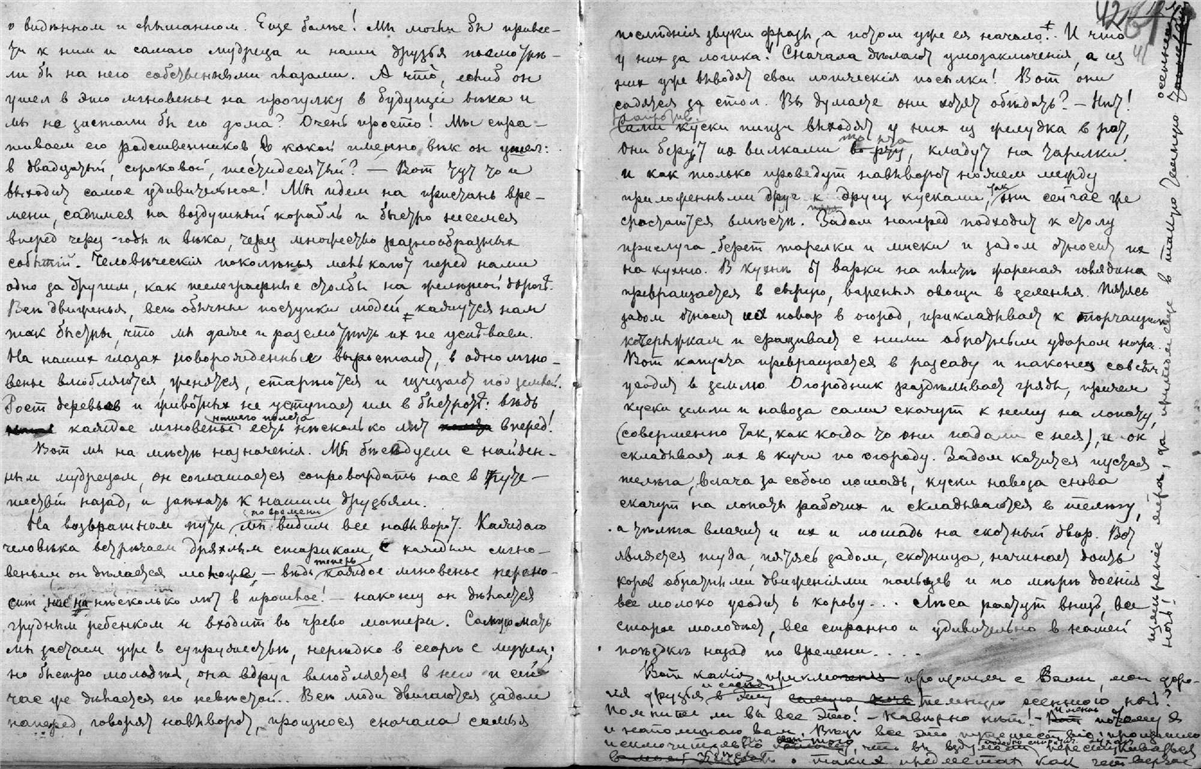 о видѣнном и слышанном. Еще болѣе! Мы могли бы привес-
ти к ним и самаго мудреца и наши друзья посмотрѣ-
ли бы на него собственными глазами. А что, если б он
ушел в это мгновенье на прогулку в будущіе вѣка и
мы не застали бы его дома? Очень просто! Мы спра-
шиваем его родственников в какой именно вѣк он ушел:
в двадцатый, сороковой, шестидесятый? — Вот тут то и
выходит самое удивительное! Мы идем на пристань вре-
мени, садимся на воздушный корабль и быстро несемся
вперед через годы и вѣка, через множество разнообразных
событій. Человѣческія поколѣнья мелькают перед нами
одно за другим, как телеграфные столбы на желѣзной дорогѣ.
Всѣ движенья, всѣ обычные поступки людей кажутся нам
так быстры, что мы даже и разсмотрѣть их не успѣваем.
На наших глазах новорожденные выростают, в одно мгно-
венье влюбляются, женятся, старѣются и исчезают под землей.
Рост деревьев и животных не уступает им в быстротѣ: вѣдь
каждое мгновенье нашего полета есть нѣсколько лѣт вперед!
Вот мы на мѣстѣ назначенія. Мы бесѣдуем с найден-
ным мудрецом, он соглашается сопровождать нас в путе-
шествіи назад, и заѣхать к нашим друзьям.
На возвратном пути по времени мы видим все навыворот. Каждаго
человѣка встрѣчаем дряхлым стариком, с каждым мгно-
веньем он дѣлается моложе, — вѣдь теперь каждое мгновенье перено-
сит нас на нѣсколько лѣт в прошлое! — наконец он дѣлается
грудным ребенком и входит во чрево матери. Самую мать
мы застаем уже в супружествѣ, нерѣдко в ссорѣ с мужем;
но быстро молодѣя, она вдруг влюбляется в него и сей
час же дѣлается его невѣстой.. Всѣ люди двигаются задом
наперед, говорят навыворот, произнося сначала самые
послѣдніе звуки фразы, а потом уже ея начало. И что
у них за логика! Сначала дѣлают умозаключенія, а из
них уже выводят свои логическія посылки! Вот они
садятся за стол. Вы думаете они хотят обѣдать? — Нѣт!
Сами куски пищи выходят у них из желудка в рот,
они берут их вилками, кладут на тарелки
и как только проведут навыворот ножем между
приложенными друг к другу кусками, так они сейчас же
сростаются вмѣстѣ. Задом наперед подходит к столу
прислуга берет тарелки и миски и задом относит их
на кухню. В кухнѣ от варки на плитѣ жареная говядина
превращается в сырую, вареные овощи в зеленыя. Пятясь
задом относит их повар в огород, прикладывает к торчащим
кочерыжкам и сращивает с ними обратным ударом ножа.
Вот капуста превращается в разсаду и наконец совсѣм
уходит в землю. Огородник раздѣлывает гряды, причем
куски земли и навоза сами скачут к нему на лопату,
(совершенно так, как когда то они падали с нея), и он
складывает их в кучи по огороду. Задом катится пустая
телѣга, влача за собою лошадь, куски навоза снова
скачут на лопаты рабочих и складываются в телѣгу,
а телѣга влачит и их и лошадь на скотный двор. Вот
является туда, пятясь задом, скотница, начинает доить
коров обратными движеніями пальцев и по мѣрѣ доенія
все молоко уходит в корову... Лѣса растут вниз, все
старое молодѣет, все странно и удивительно в нашей
поѣздкѣ назад по времени....
Вот какія приключенія произошли с Вами, мои доро-
гіе друзья в темную осеннюю ночь!
Помните ли вы все это? — Навѣрно нѣт! — потому я
и напоминаю вам. Вѣдь все это путешествіе произошло